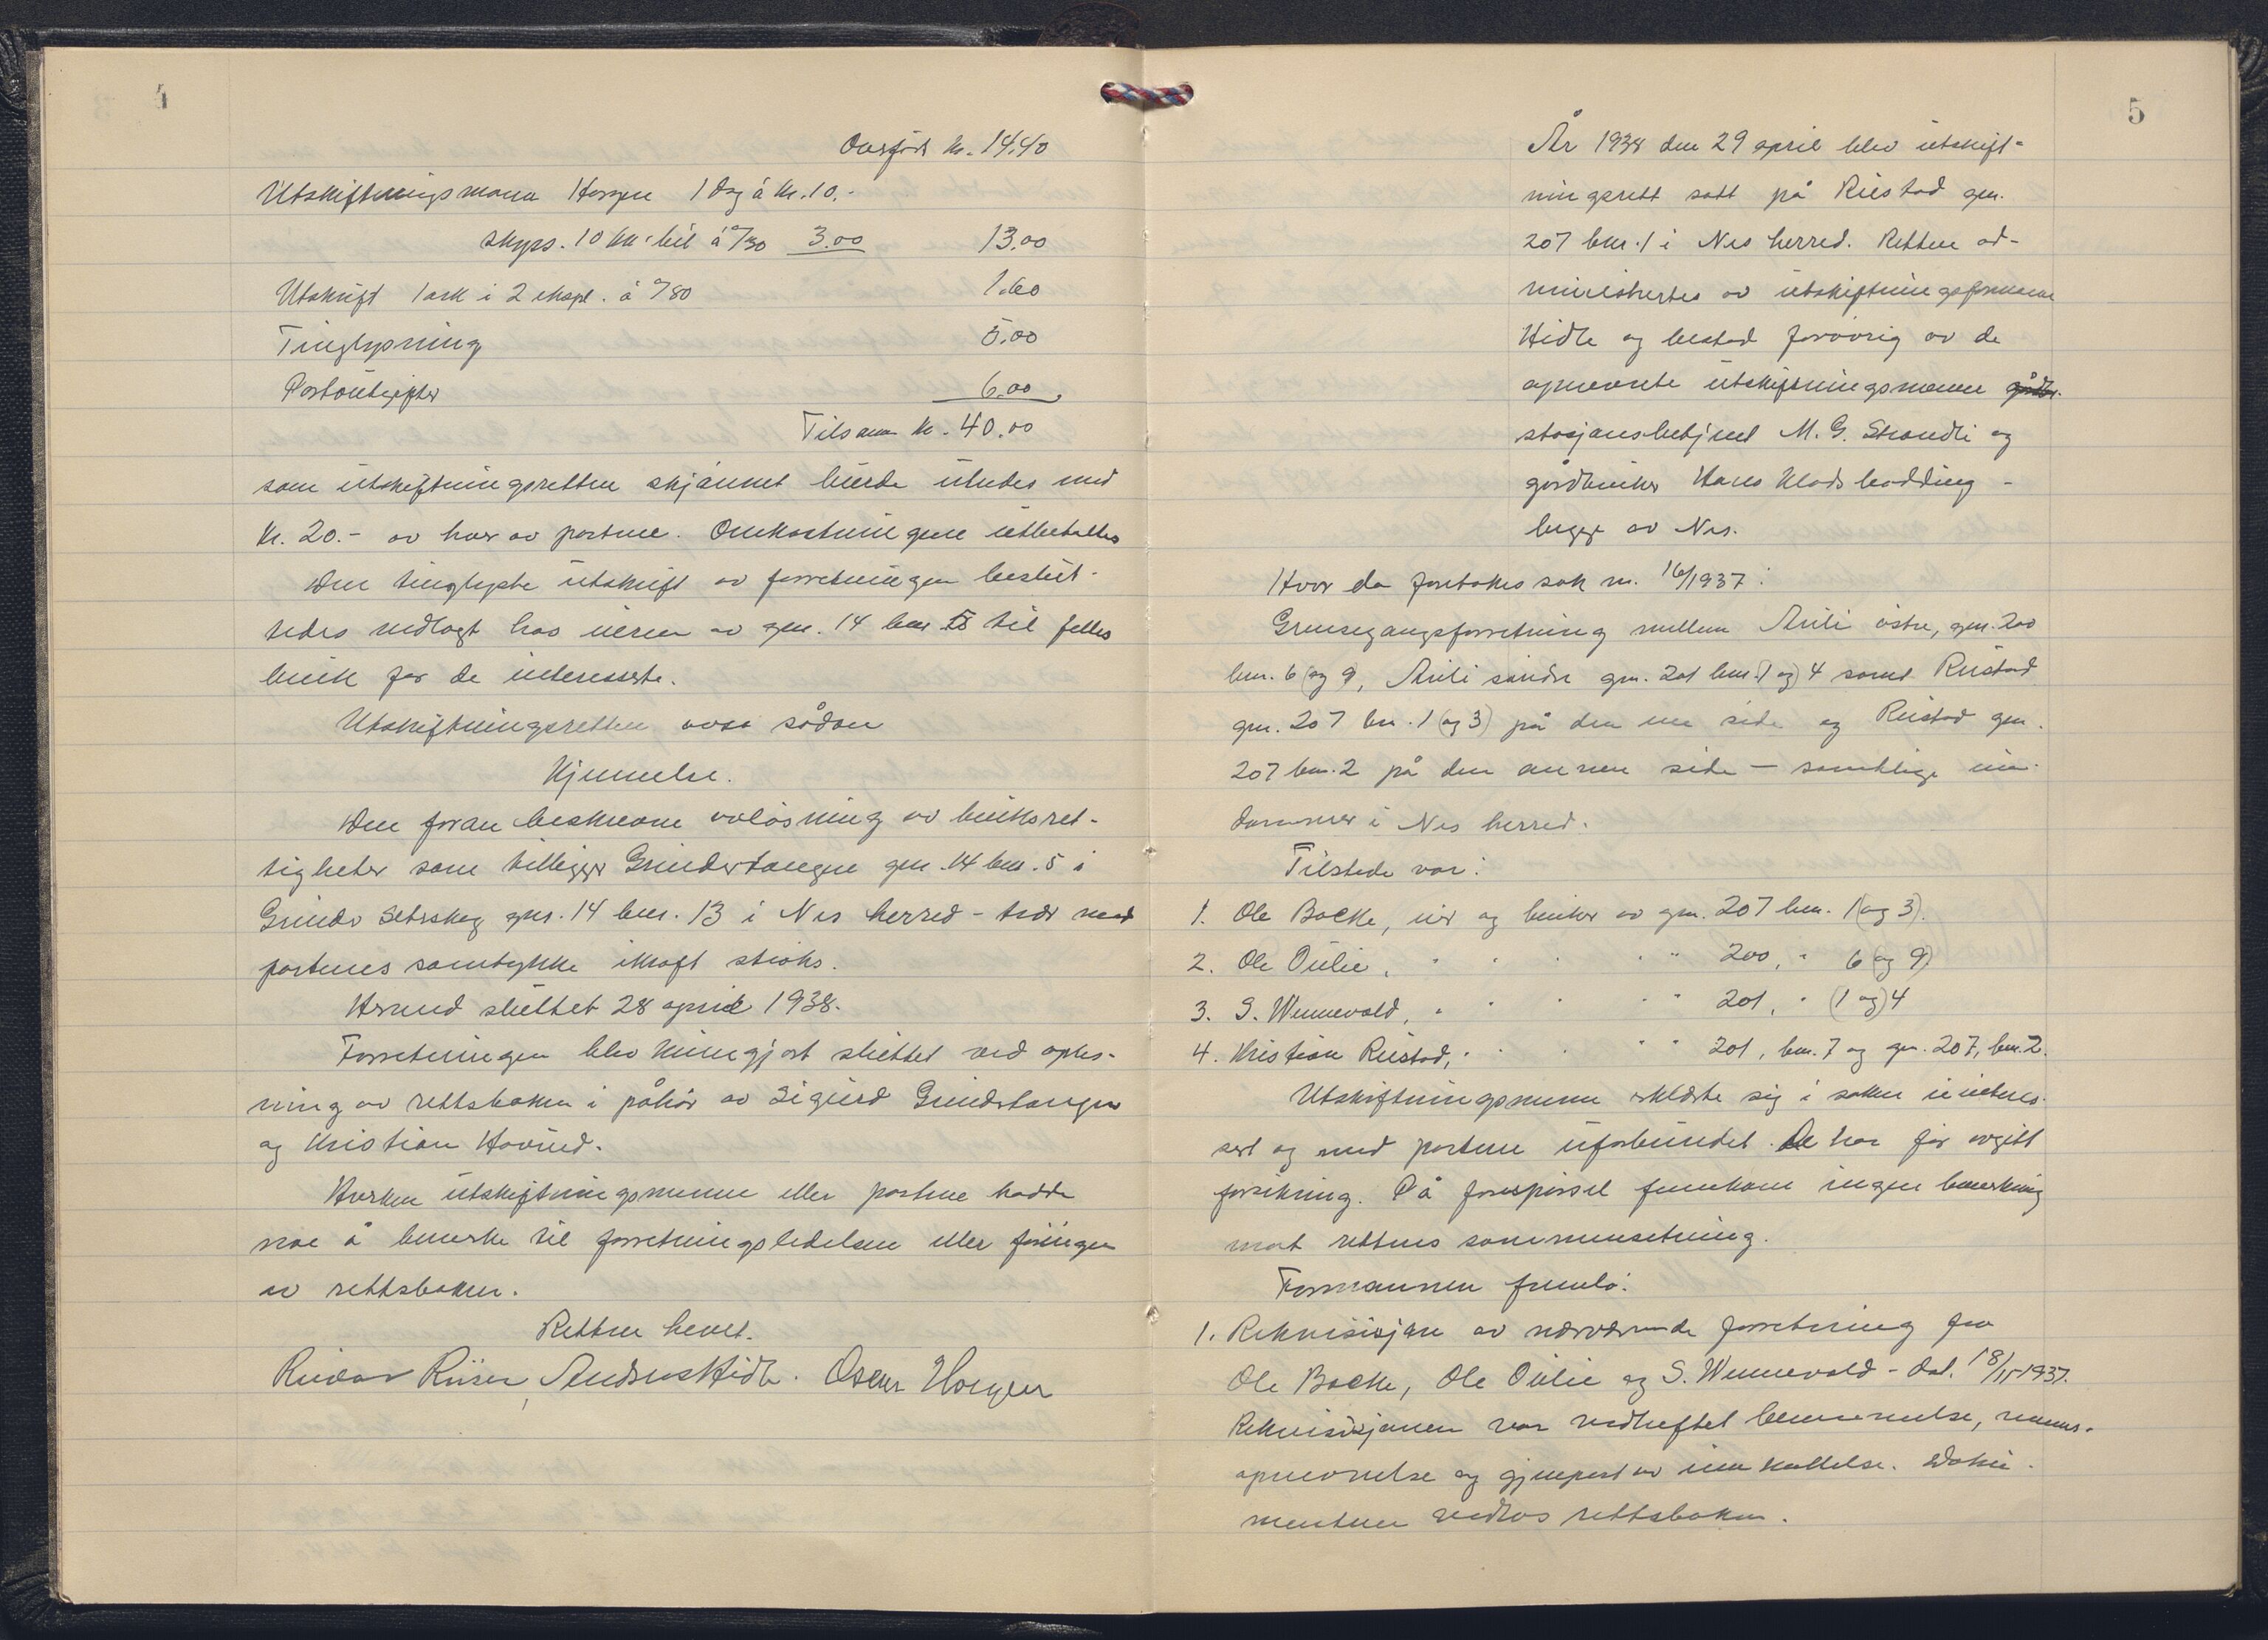 4
Overført kr. 14.40
Utskiftningsmann Horgen 1 dag á kr. 10.-
skyss. 10 km. bil á 0/30 3.00 13.00
Utskrift 1 ark i 2 ekspl. á 0/80 1.60
Tinglysning 5.00
Portoutgifter 6.00
Tilsam. kr. 40.00
som utskiftningsretten skjønnet burde utredes med
kr. 20.- av hver av partene. Omkostningene utbetaltes
Den tinglyste utskrift av forretningen beslut-
tedes nedlagt hos eieren av gnr. 14 bnr. 13 til felles
bruk for de interesserte.
Utskiftningsretten avsa sådan
Kjennelse.
Den foran beskrevne avløsning av bruksret-
tigheter som tilligger Grindertangen gnr. 14 bnr. 5 i
Grinder Seterskog gnr. 14 bnr. 13 i Nes herred - trær med
partenes samtykke ikraft straks.
Hermed sluttet 28 april 1938.
Forretningen blev kunngjort sluttet ved oples-
ning av rettsboken i påhør av Sigurd Grindertangen
og Kristian Hovrud.
Hverken utskiftningsmenn eller partene hadde
noe å bemerke til forretningsledelsen eller føringen
av rettsboken.
Retten hevet.
Reidar Riiser, Andreas Hidle. Oscar Horgen
5
År 1938 den 29 april blev utskift-
ningsrett satt på Rustad gnr.
207 bnr. 1 i Nes herred. Retten ad-
ministrertes av utskiftningsformann
Hidle og bestod forøvrig av de
opnevnte utskiftningsmenn gårdbr.
stasjonsbetjent M. G. Strandli og
gårdbruker Hans Kladsbadding -
begge av Nes.
Hvor da foretokes sak nr. 16/1937:
Grensegangsforretning mellem Auli østre, gnr. 200
bnr. 6 (og 9), Auli søndre gnr. 201 bnr. (1 og) 4 samt Rustad
gnr. 207 bnr. 1 (og 3) på den ene side og Rustad gnr.
207 bnr. 2 på den annen side - samtlige eien-
dommer i Nes herred.
Tilstede var:
1. Ole Bakke, eier og bruker av gnr. 207 bnr. 1 (og 3).
2. Ole Oulie, " " " " " 200, " 6 (og 9)
3. S. Wennevold, " " " " " 201, " (1 og) 4
4. Kristian Rustad, " " " " " 201, bnr. 7 og gnr. 207, bnr. 2.
Utskiftningsmenn erklærte sig i saken uinteres-
sert og med partene uforbundet. De har før avgitt
forsikring. På forespørsel fremkom ingen bemerkning
mot rettens sammensetning.
Formannen fremla:
1. Rekvisisjon av nærværende forretning fra
Ole Bakke, Ole Oulie og S. Wennevold - dat. 18/11-1937.
Rekvisisjonen var vedheftet berammelse,
opnevnelse og gjenpart av innkallelse. Doku-
mentene vedlas rettsboken.